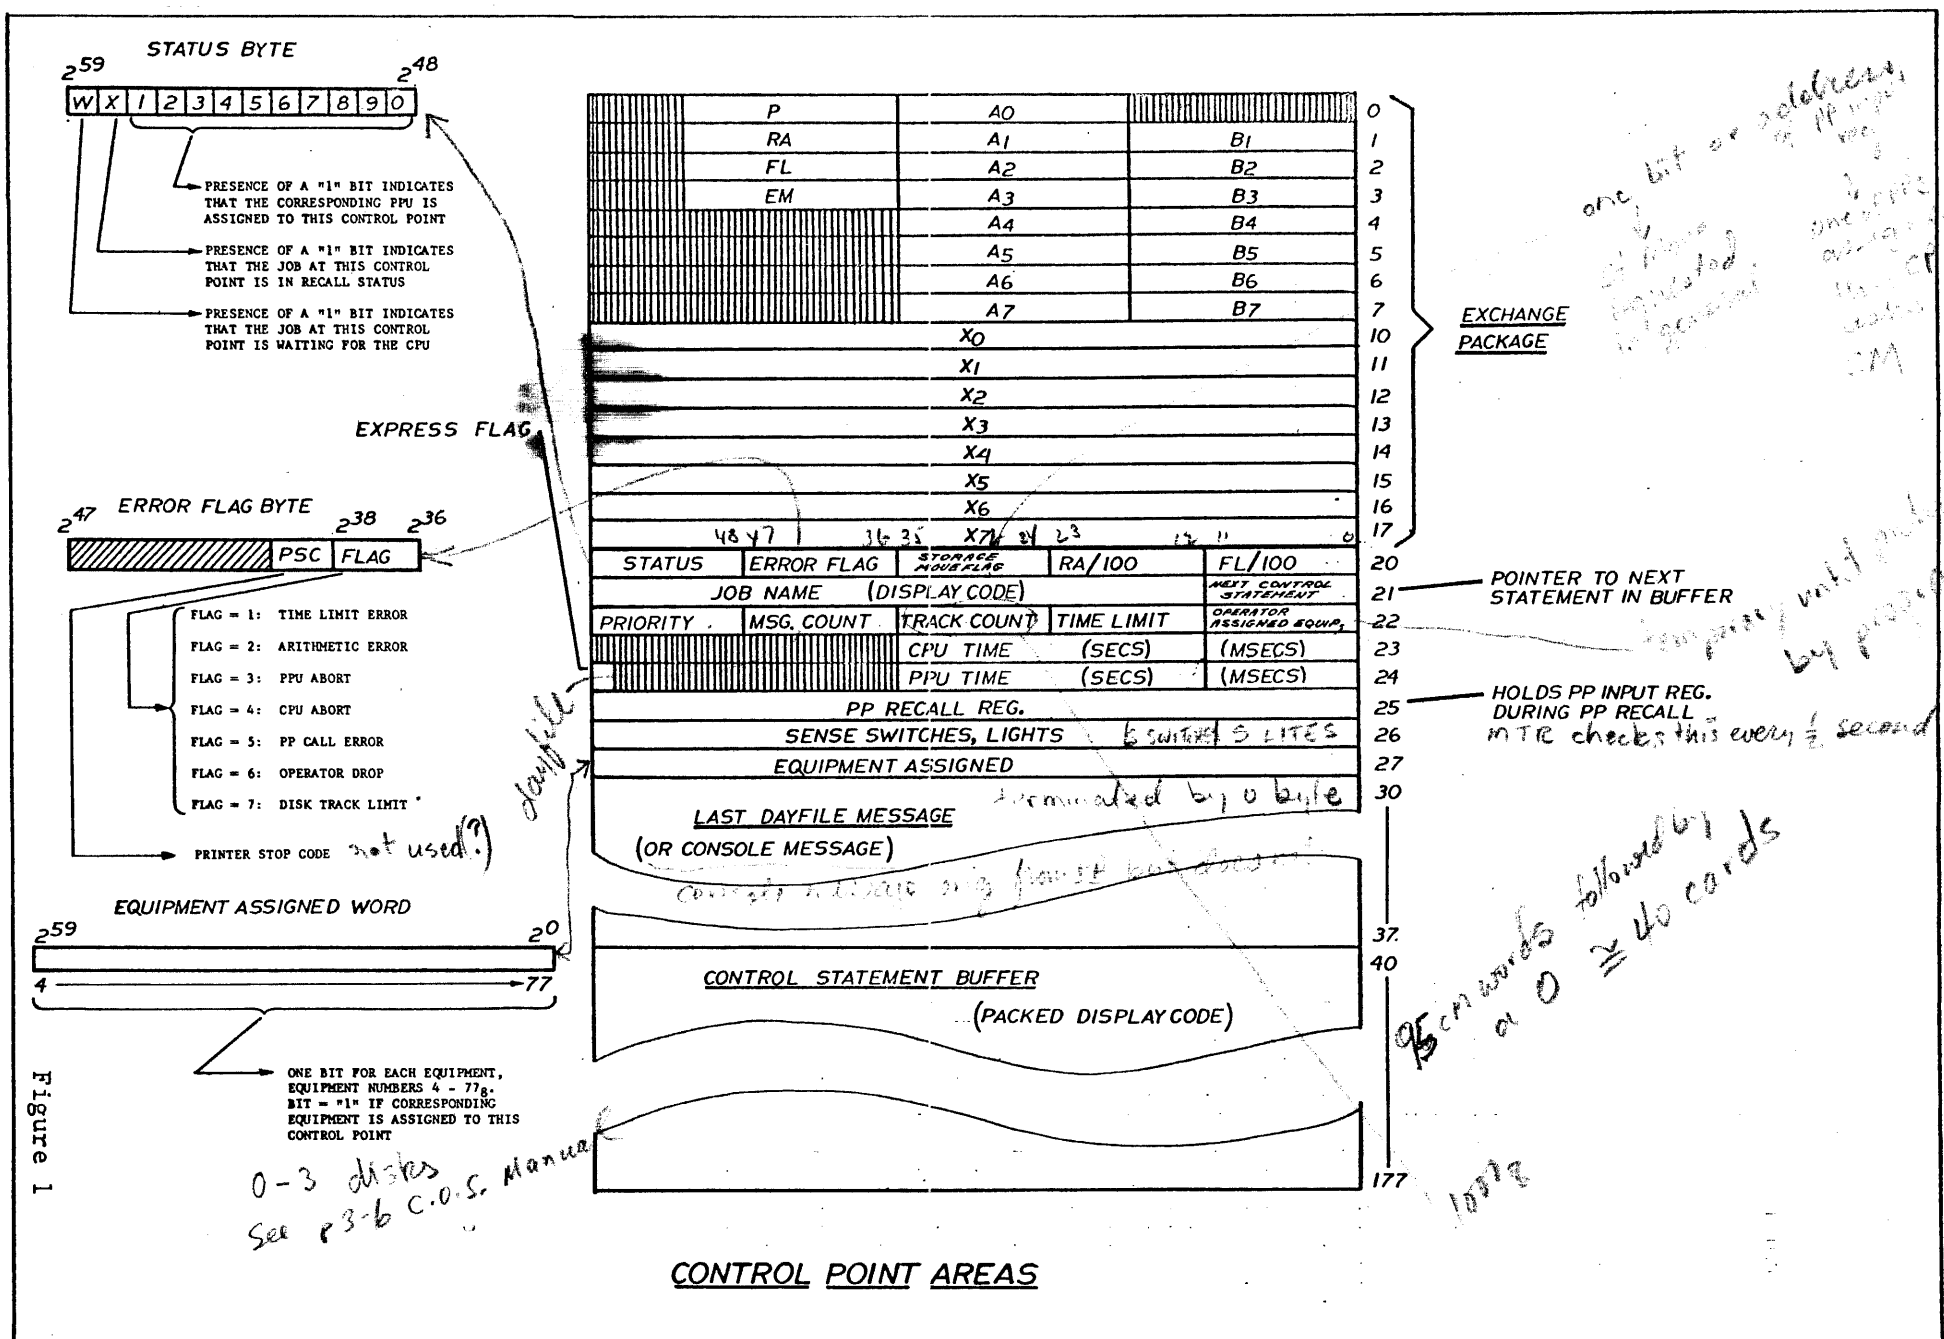 STATUS BYTE
2^59 2^48
W X 1 2 3 4 5 6 7 8 9 0
PRESENCE OF A "1" BIT INDICATES
THAT THE CORRESPONDING PPU IS
ASSIGNED TO THIS CONTROL POINT
PRESENCE OF A "1" BIT INDICATES
THAT THE JOB AT THIS CONTROL
POINT IS IN RECALL STATUS
PRESENCE OF A "1" BIT INDICATES
THAT THE JOB AT THIS CONTROL
POINT IS WAITING FOR THE CPU
EXPRESS FLAG
ERROR FLAG BYTE
2^47 2^38 2^36
PSC FLAG
FLAG = 1: TIME LIMIT ERROR
FLAG = 2: ARITHMETIC ERROR
FLAG = 3: PPU ABORT
FLAG = 4: CPU ABORT
FLAG = 5: PP CALL ERROR
FLAG = 6: OPERATOR DROP
FLAG = 7: DISK TRACK LIMIT
PRINTER STOP CODE not used(?)
dayfile
EQUIPMENT ASSIGNED WORD
2^59 2^0
4 77
ONE BIT FOR EACH EQUIPMENT,
EQUIPMENT NUMBERS 4 - 77₈.
BIT = "1" IF CORRESPONDING
EQUIPMENT IS ASSIGNED TO THIS
CONTROL POINT
0-3 disks
See p3-6 C.O.S. Manual
Figure 1
P A0 0
RA A1 B1 1
FL A2 B2 2
EM A3 B3 3
A4 B4 4
A5 B5 5
A6 B6 6
A7 B7 7
X0 10
X1 11
X2 12
X3 13
X4 14
X5 15
X6 16
48 47 36 35 X7 24 23 12 11 0 17
STATUS ERROR FLAG STORAGE MOVE FLAG RA/100 FL/100 20
JOB NAME (DISPLAY CODE) NEXT CONTROL STATEMENT 21
PRIORITY MSG. COUNT TRACK COUNT TIME LIMIT OPERATOR ASSIGNED EQUIP. 22
CPU TIME (SECS) (MSECS) 23
PPU TIME (SECS) (MSECS) 24
PP RECALL REG. 25
SENSE SWITCHES, LIGHTS 6 SWITCHES 5 LITES 26
EQUIPMENT ASSIGNED 27
terminated by 0 byte 30
LAST DAYFILE MESSAGE
(OR CONSOLE MESSAGE)
37
40
CONTROL STATEMENT BUFFER
(PACKED DISPLAY CODE)
177
EXCHANGE
PACKAGE
one bit or address
POINTER TO NEXT
STATEMENT IN BUFFER
temporary until
by program
HOLDS PP INPUT REG.
DURING PP RECALL
MTR checks this every ½ second
95 CM words followed by
a 0 ≅ 40 cards
CONTROL POINT AREAS